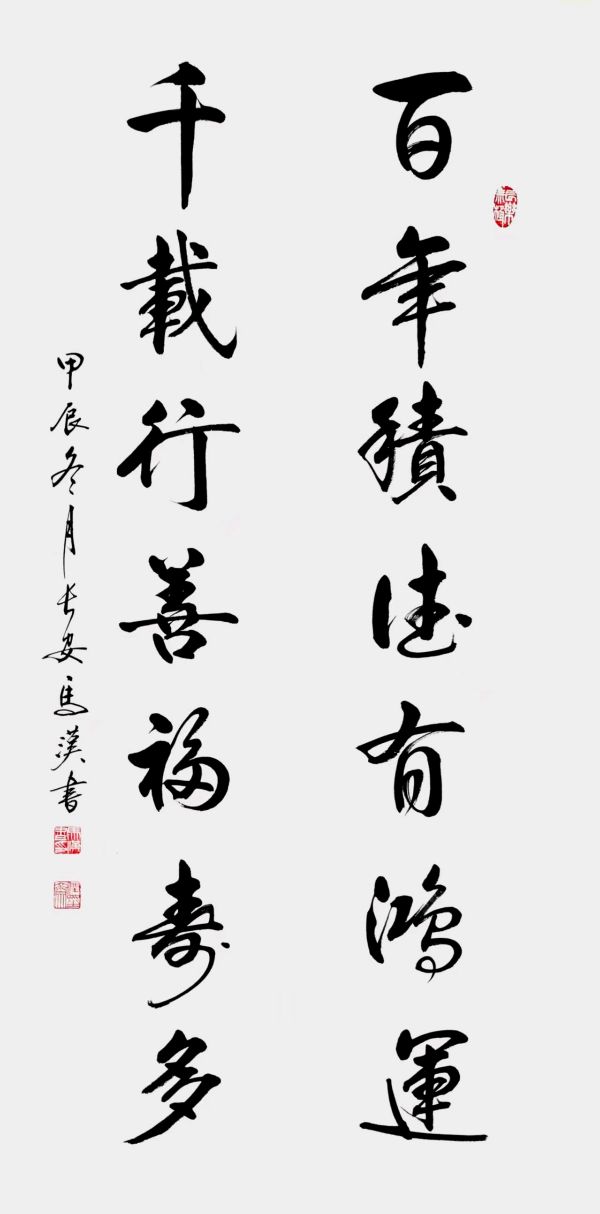 百年積德有鴻運
千載行善福壽多
甲辰冬月長安馬漢書